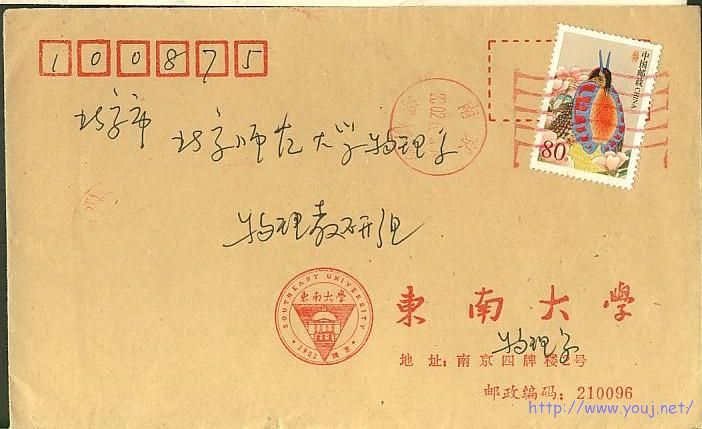 100875
中国邮政
CHINA
80分
南京
2002
北京市
北京师范大学物理系
物理教研组
SOUTHEAST UNIVERSITY
東南大學
1902 南京
東南大學
物理系
地址:南京四牌楼2号
邮政编码:210096
http://www.youj.net/